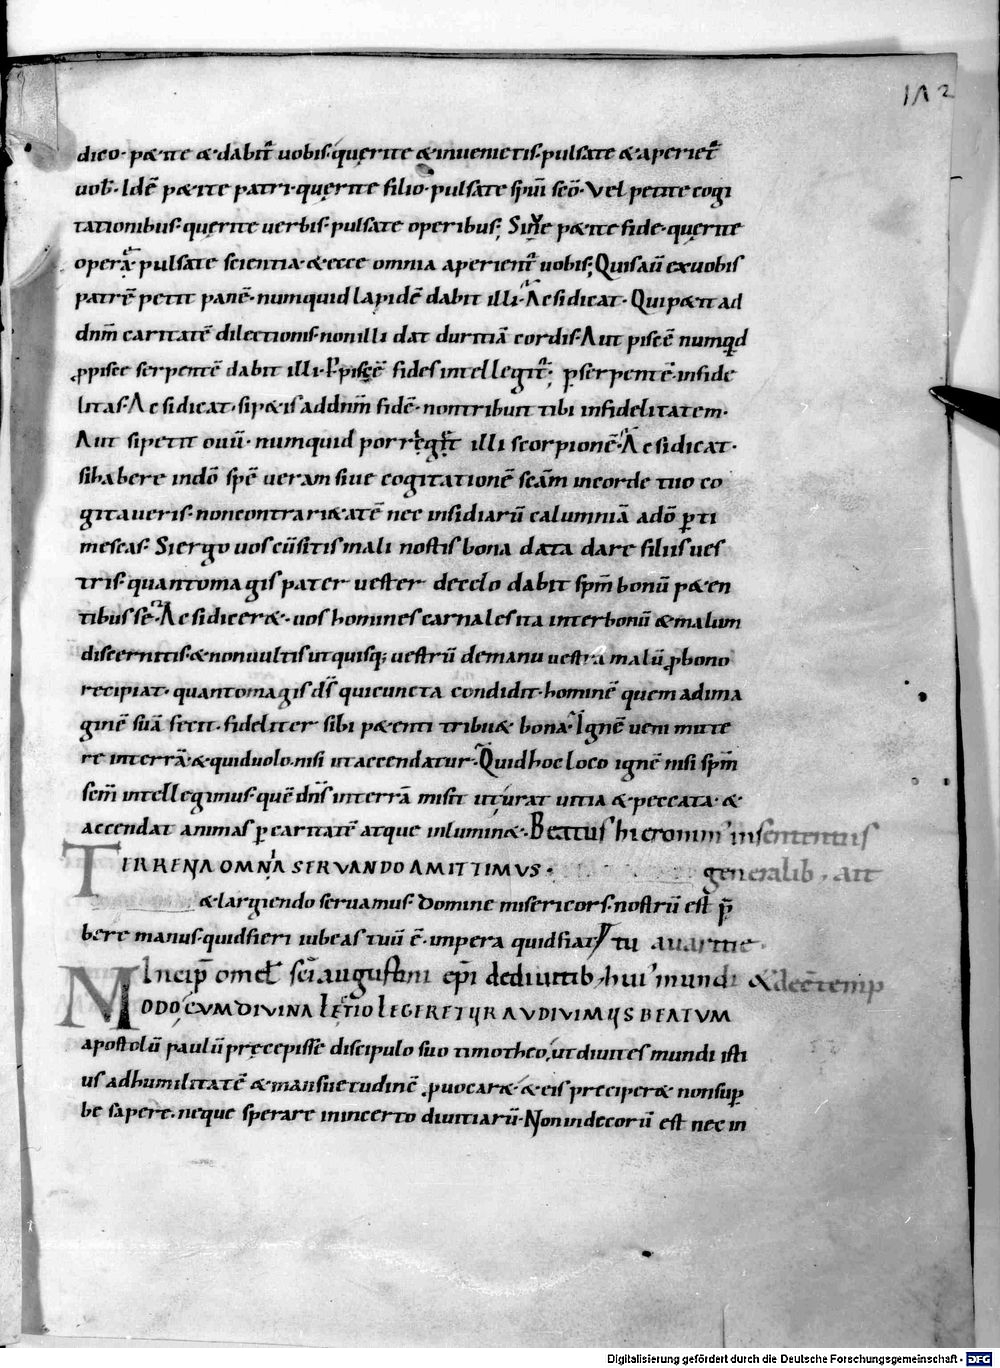 112
dico· p&ite & dabit̄ uobis· quęrite & inuenietis· pulsate & aperiet̄
uob̄· Idē p&ite patri· quęrite filio· pulsate sp̄m sc̄o· Vel petite cogi
tationibus· quęrite uerbis· pulsate operibus; p&ite fide· quęrite
opera· pulsate scientia· & ecce omnia aperient̄ uobis; Quis aū ex uobis
patrē petit panē· numquid lapidē dabit illi· Ac si dicat· Qui p&it ad
dn̄m caritatē dilectionis· non illi dat duritiā cordis· Aut piscē numqd
ꝓ pisce serpentē dabit illi· P piscē fides intellegit̄; ꝑ serpentē infide
litas· Ac si dicat· si p&is ad dn̄m fidē· non tribuit tibi infidelitatem·
Aut si petit ouū· numquid porręg&̄ illi scorpionē· Ac si dicat·
si habere in dō spē ueram siue cogitationē sc̄am in corde tuo co
gitaueris· non contrari&atē nec insidiarū calumniā a dō ꝑti
mescas· Si ergo uos cū sitis mali nostis bona data dare filiis ues
tris· quanto magis pater uester de cęlo dabit sp̄m bonū p&en
tibus se· Ac si dicer&· uos homines carnales ita inter bonū & malum
discernitis· & non uultis ut quisq; uestrū de manu uestra malū ꝓ bono
recipiat· quanto magis ds̄ qui cuncta condidit· hominē quem ad ima
ginē suā fecit· fideliter sibi p&enti tribu& bona· Ignē ueni mitte
re in terrā· & quid uolo· nisi ut accendatur· Quid hoc loco ignē nisi sp̄m
sc̄m intellegimus· quē dn̄s in terrā misit ut urat uitia & peccata· &
accendat animas ꝑ caritatē atque inlumin&· Beatus hieronim' in sententiis
TERRENA OMNIA SERVANDO AMITTIMUS· generalib· ait
& largiendo seruamus· Domine misericors· nostrū est p̄
bere manus· quid fieri iubeas tuū ē· impera quid fiat tu auaritie·
Incip̄ omel̄ sc̄i augustini ep̄i de diuitib, hui' mundi & dec̄ temp
MODO CVM DIVINA LECTIO LEGERETUR AUDIVIMUS BEATVM
apostolū paulū pręcepisse discipulo suo timotheo, ut diuites mundi isti
us ad humilitatē & mansuetudinē ꝓuocar& & eis preciper& non suꝑ
be sapere· neque sperare in incerto diuitiarū· Non indecorū est nec in
Digitalisierung gefördert durch die Deutsche Forschungsgemeinschaft - DFG